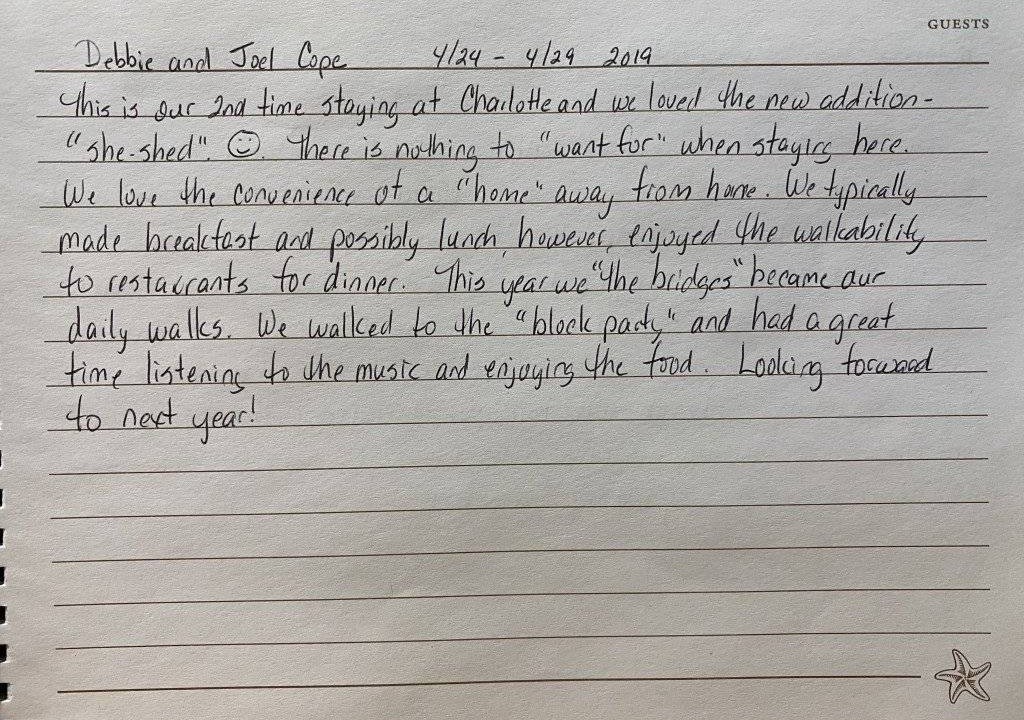 GUESTS
Debbie and Joel Cope 4/24 - 4/29 2019
This is our 2nd time staying at Charlotte and we loved the new addition-
"she-shed". ☺. There is nothing to "want for" when staying here.
We love the convenience of a "home" away from home. We typically
made breakfast and possibly lunch, however, enjoyed the walkability
to restaurants for dinner. This year we "the bridges" became our
daily walks. We walked to the "block party" and had a great
time listening to the music and enjoying the food. Looking forward
to next year!